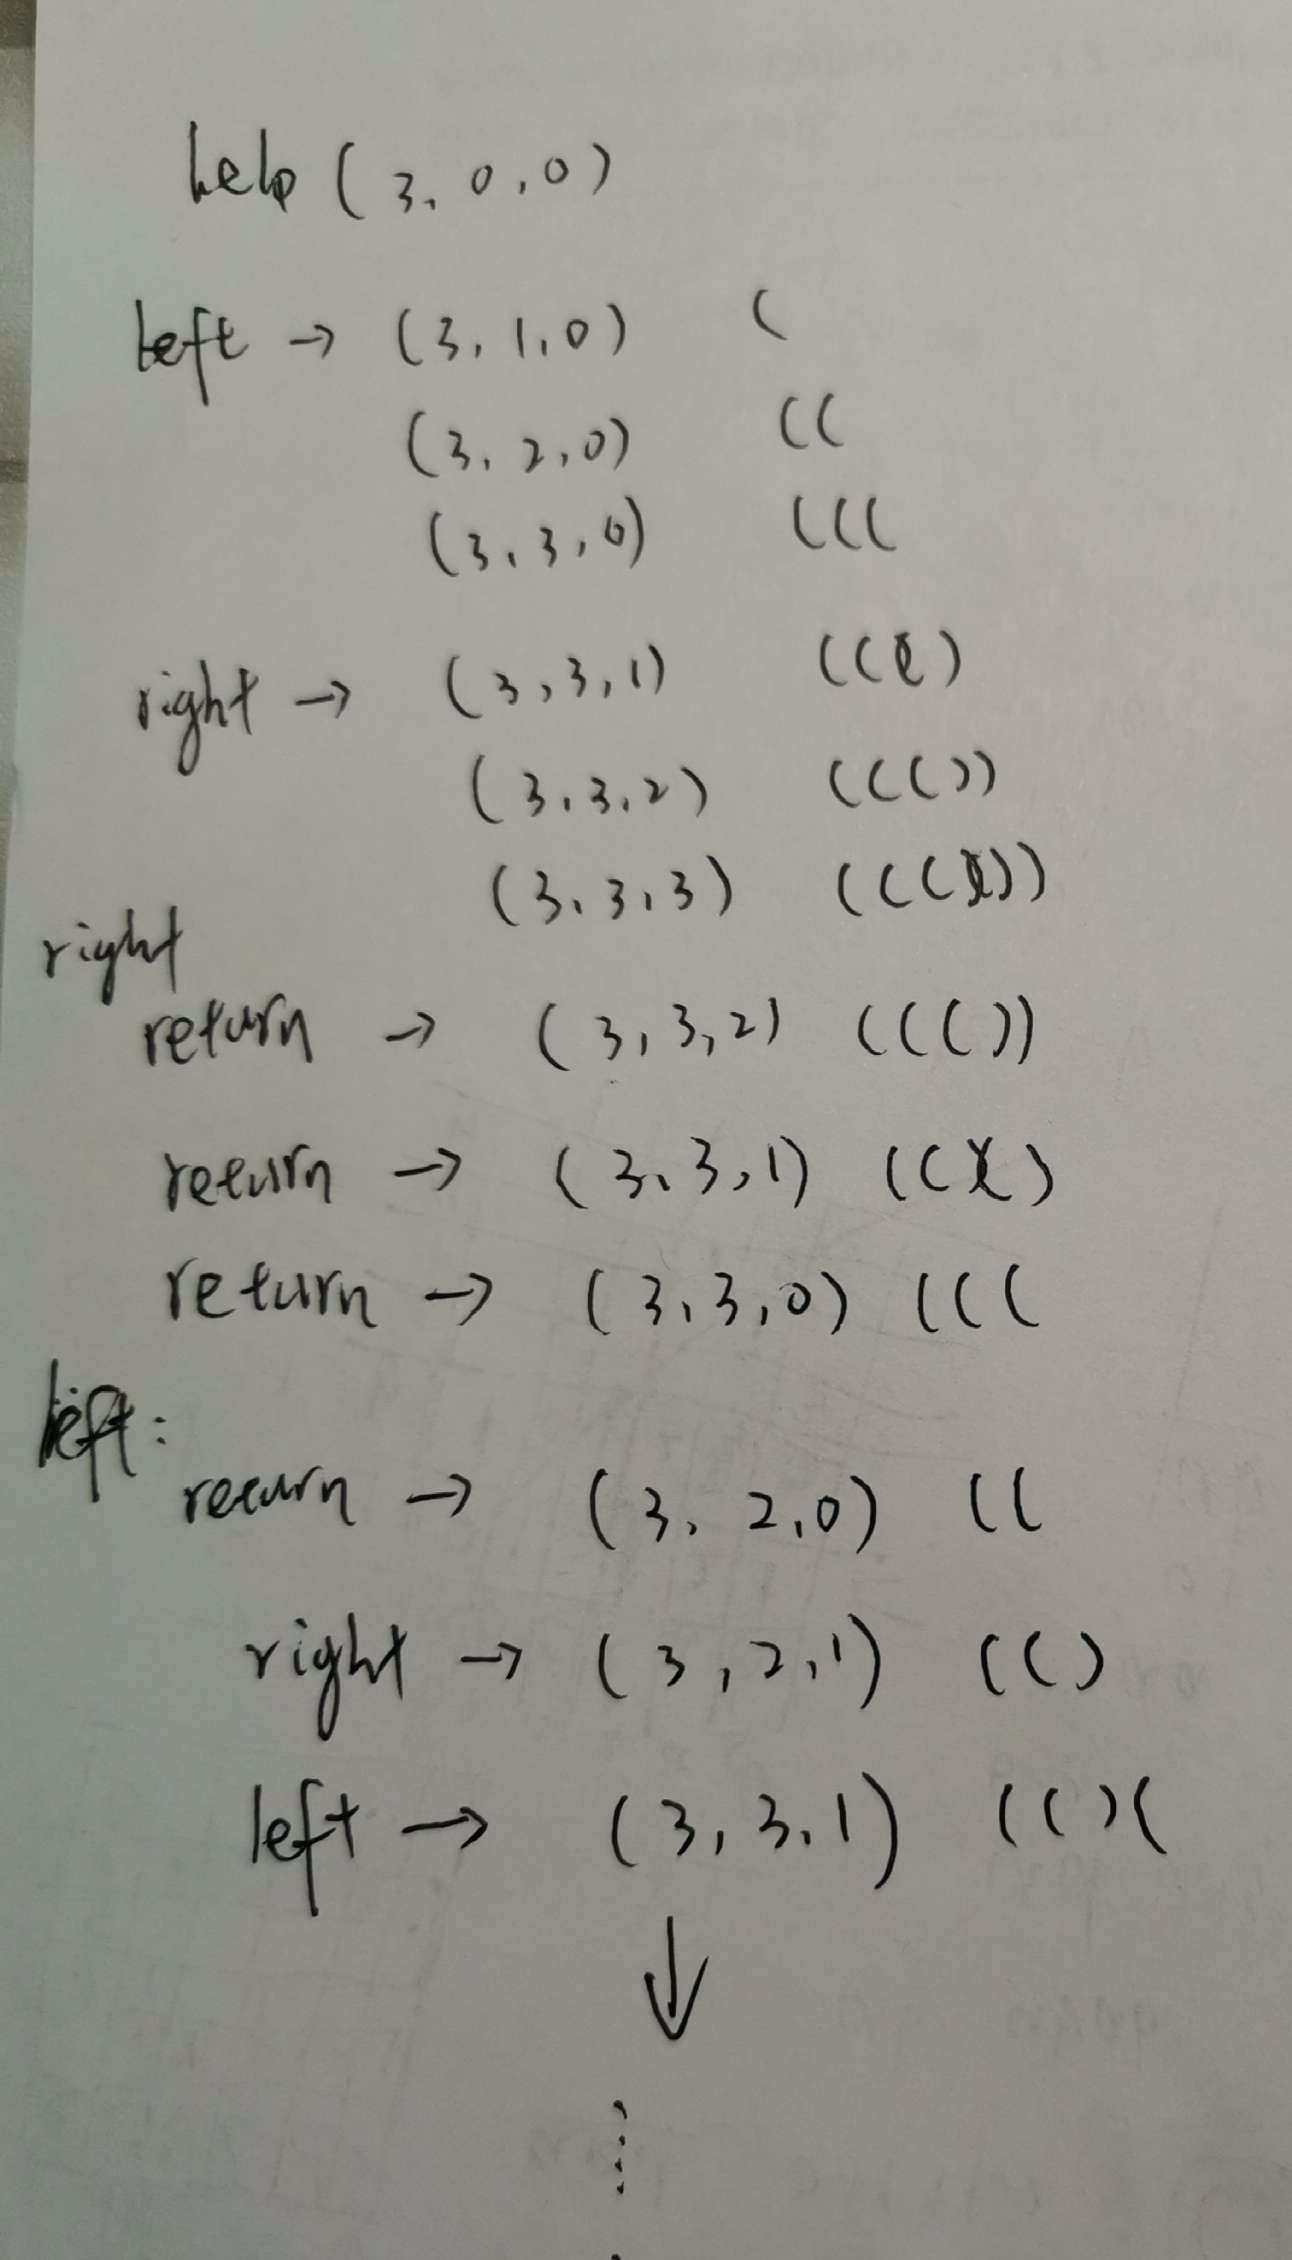 help (3,0,0)
left → (3,1,0) (
(3,2,0) ((
(3,3,0) (((
right → (3,3,1) ((()
(3,3,2) ((())
(3,3,3) ((()))
right
return → (3,3,2) ((())
return → (3,3,1) ((()
return → (3,3,0) (((
left:
return → (3,2,0) ((
right → (3,2,1) (()
left → (3,3,1) (()(
↓
⋮